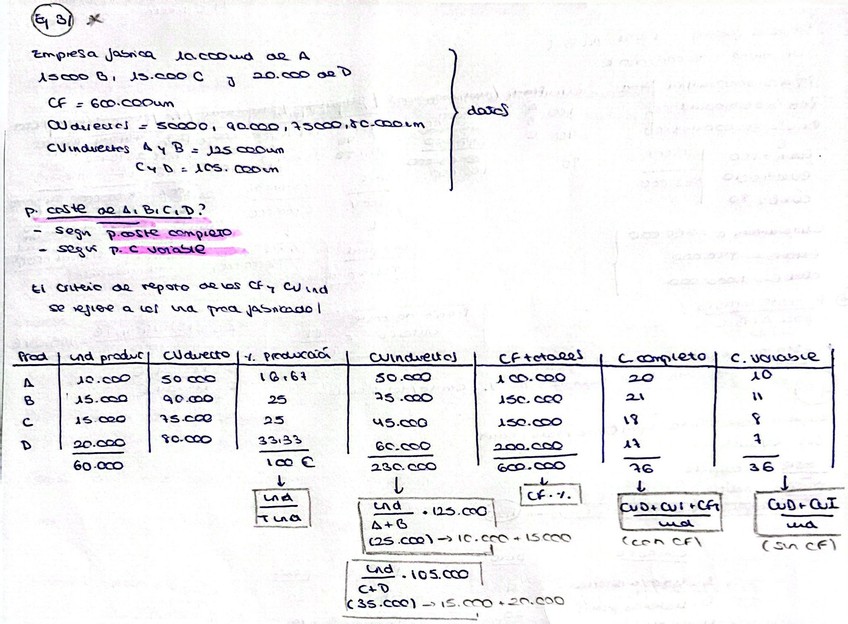 Ej 31 *
Empresa fabrica 10.000 und de A
15000 B, 15.000 C y 20.000 de D
CF = 600.000um
CVdirectos = 50000, 90.000, 75000, 80.000um
CVindirectos A y B = 125000um
C y D = 105.000um
datos
P. coste de A, B, C, D?
- segun p.coste completo
- segun p. C variable
El criterio de reparto de los CF y CV ind
se refiere a las und prod fabricado
Prod | und produc | CVdirecto | % Producción | CVIndirectos | CF totales | C. completo | C. variable
A 10.000 50000 16,67 50.000 100.000 20 10
B 15.000 90.000 25 75.000 150.000 21 11
C 15.000 75.000 25 45.000 150.000 18 8
D 20.000 80.000 33,33 60.000 200.000 17 7
60.000 100 € 230.000 600.000 76 36
und / T und
und / A+B · 125.000
(25.000) → 10.000 + 15000
CF · %
CVD + CVI + CFt / und
(con CF)
CVD + CVI / und
(sin CF)
und / C+D · 105.000
(35.000) → 15.000 + 20.000